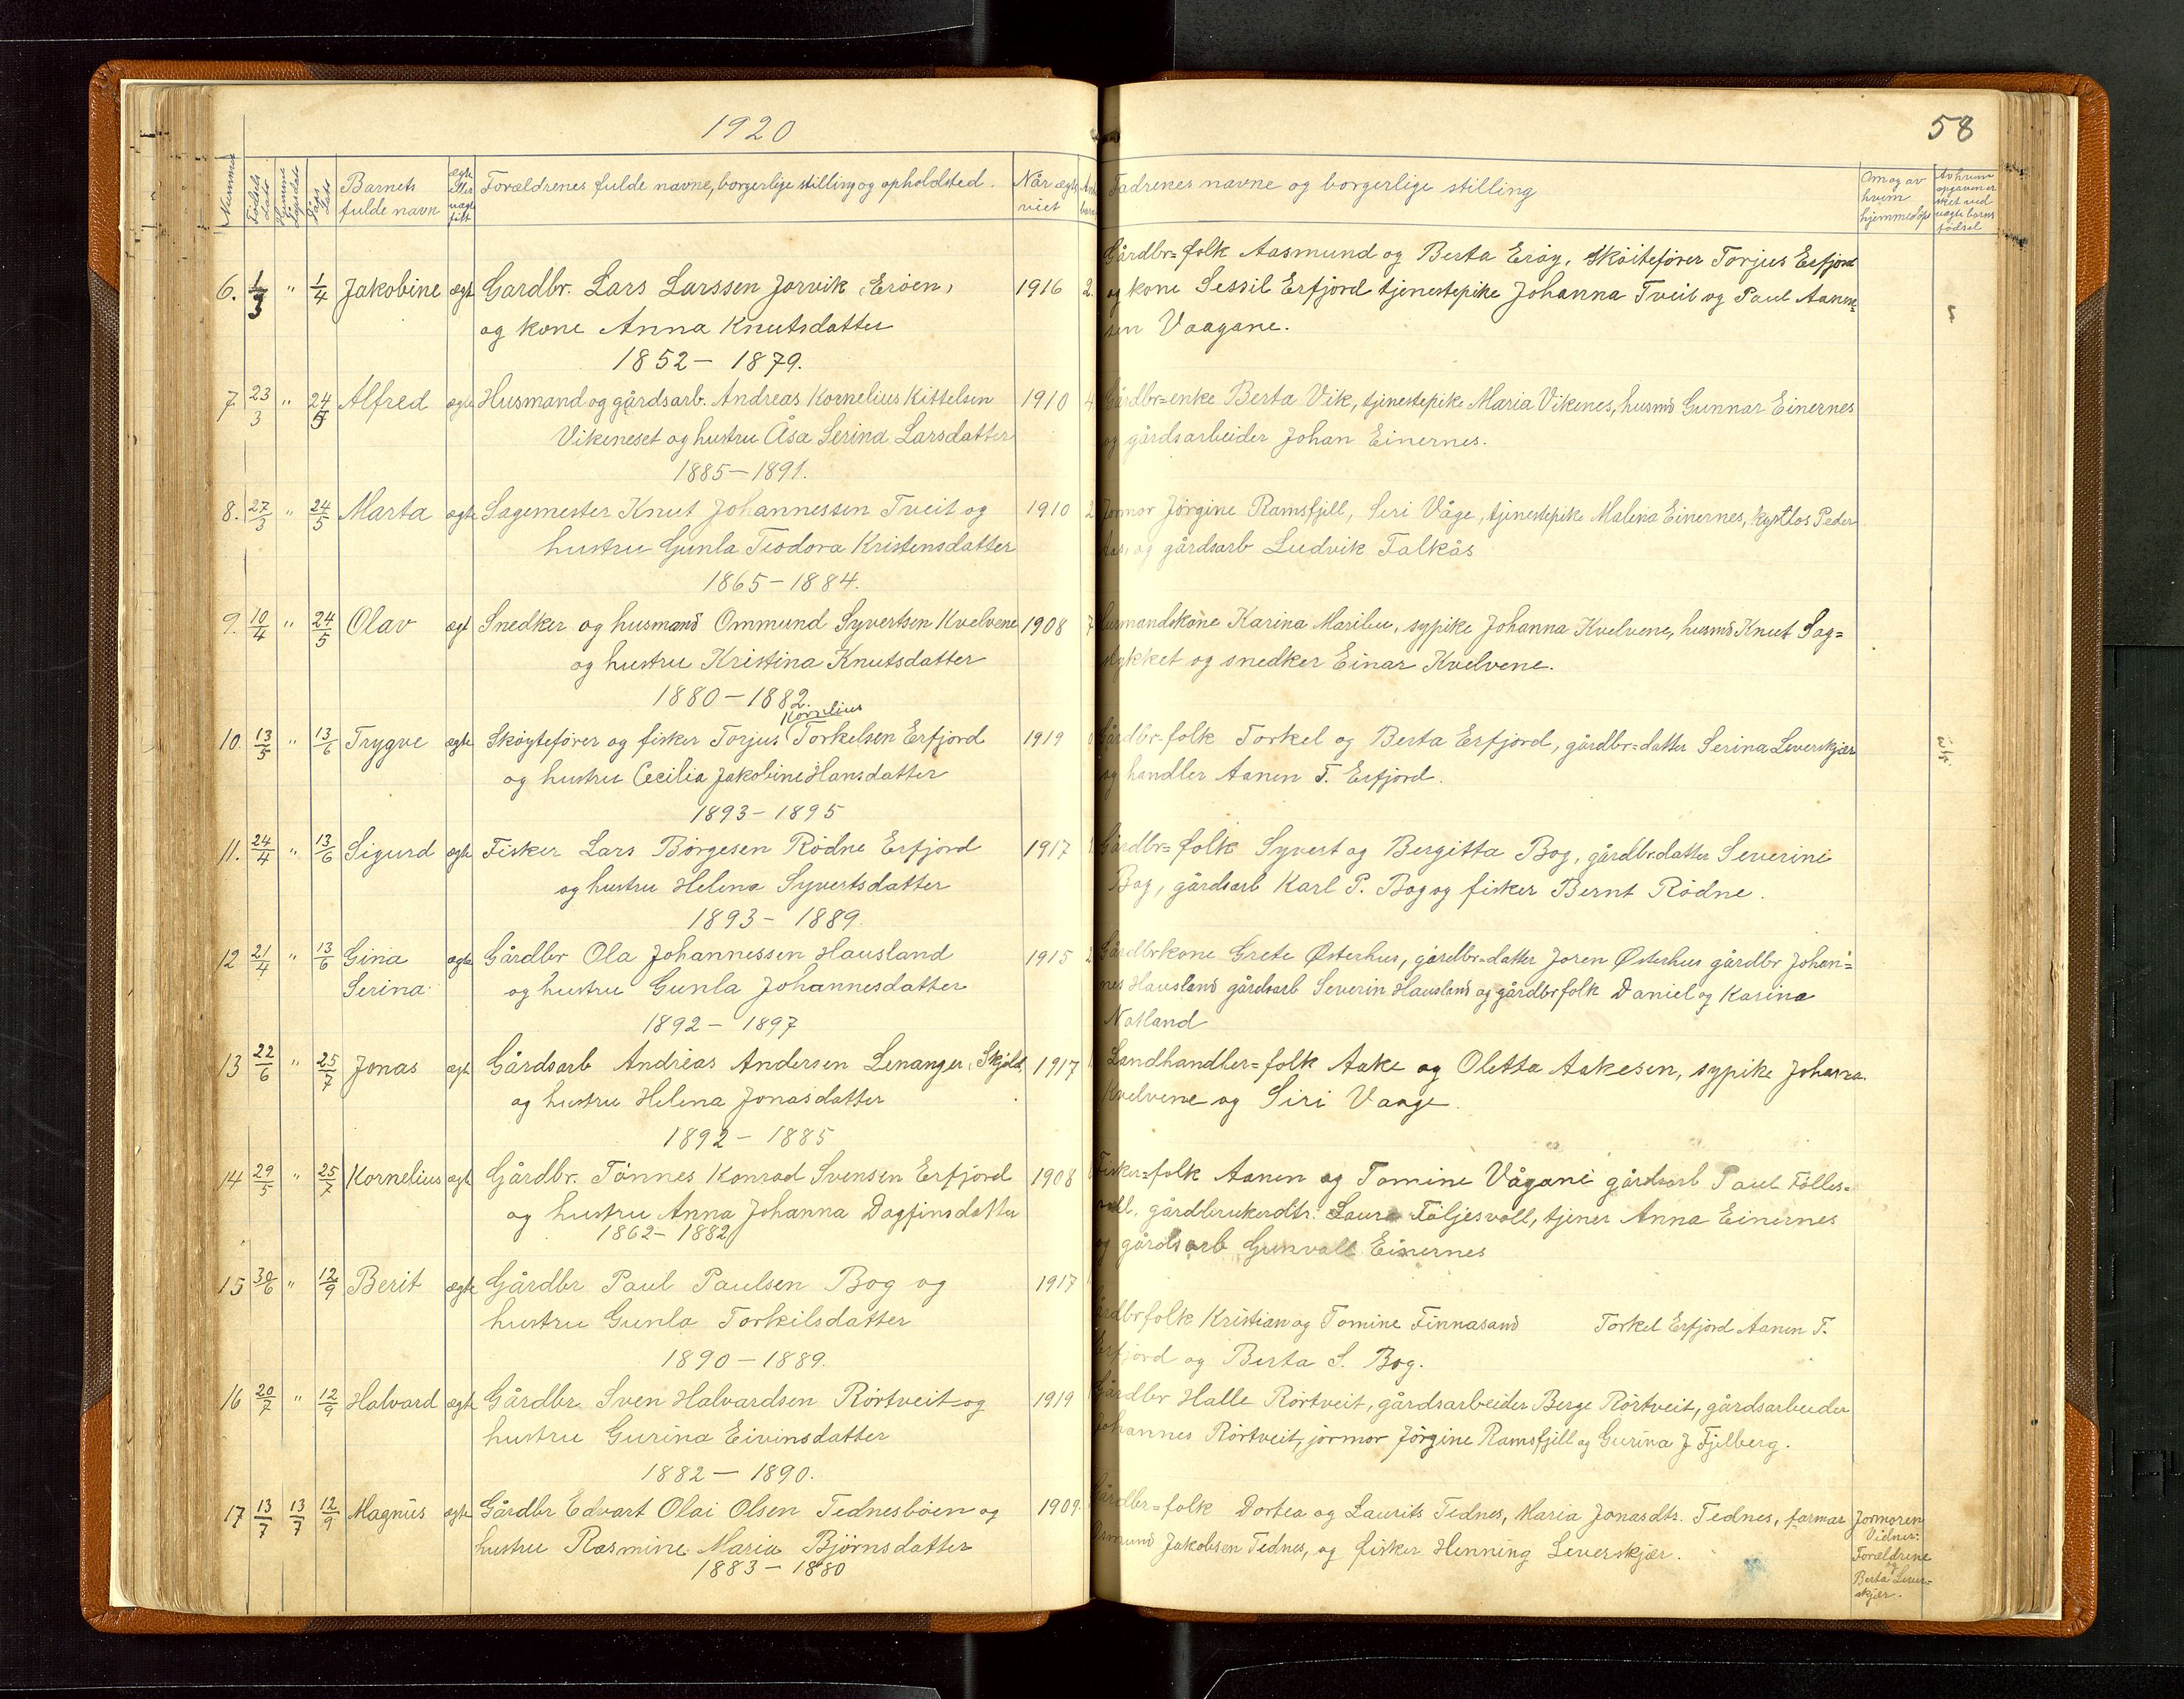 1920
58
Nummer
Födsels dato
Hjemmedaabsdato
Daabs dato
Barnets fulde navn
ægte eller uægte födt
Forældrenes fulde navne, borgerlige stilling og opholdsted.
Når ægteviet
Fadrenes navne og borgerlige stilling
Om og av hvem hjemmedöpt
Av hvem opgaven er sket ved uægte barns födsel
6. 1/3 " 1/4 Jakobine ægt Gardbr. Lars Larssen Jorvik, Eröen, 1916 2.
og kone Anna Knutsdatter
1852 – 1879.
Gårdbr=folk Aasmund og Berta Eröy, Sköitefører Torjus Erfjord
og kone Sessil Erfjord tjenestepike Johanna Tveit og Paul Aanen=
sen Vaagane.
7. 23/3 " 24/5 Alfred ægte Husmand og gårdsarb. Andreas Kornelius Kittelsen 1910 4
Vikeneset og hustru Åsa Serina Larsdatter
1885 – 1891.
Gårdbr=enke Berta Vik, tjenestepike Maria Vikenes, husmd Gunnar Einernes
og gårdsarbeider Johan Einernes.
8. 27/3 " 24/5 Marta ægte Sagemester Knut Johannessen Tveit og 1910 2
hustru Gunla Teodora Kristensdatter
1865 – 1884.
Jormor Jörgine Ramsfjell, Seri Våge, tjenestepike Malena Einernes, kystlos Peder
Aas, og gårdsarb Ludvik Falkås
9. 10/4 " 24/5 Olav ægt Snedker og husmand Ommund Syvertsen Kvelvene 1908 7
og hustru Kristina Knutsdatter
1880 – 1882.
Husmandskone Karina Maribu, sypike Johanna Kvelvene, husmd Knut Sag=
stykket og snedker Einar Kvelvene.
10. 13/5 " 13/6 Trygve ægte Sköytefører og fisker Torjus Kornelius Torkelsen Erfjord 1919 0
og hustru Cecilia Jakobine Hansdatter
1893 – 1895
Gårdbr-folk Torkel og Berta Erfjord, gårdbr=datter Serina Leverskjær
og handler Aanen T. Erfjord.
11. 24/4 " 13/6 Sigurd ægte Fisker Lars Börgesen Rödne Erfjord 1917
og hustru Helena Syvertsdatter
1893 – 1889.
Gårdbr=folk Syvert og Bergitta Bog, gårdbr.datter Severine
Bog, gårdsarb Karl P. Bog og fisker Bernt Rödne.
12 21/4 " 13/6 Gina Serina ægte Gårdbr Ola Johannessen Hausland 1915 2
og hustru Gunla Johannesdatter
1892 – 1897
Gårdbrkone Grete Østerhus, gårdbr=datter Joren Østerhus gårdbr Johan=
nes Hausland gårdsarb Severin Hausland og gårdbrfolk Daniel og Karina
Natland
13 22/6 " 25/7 Jonas ægt Gårdsarb Andreas Andersen Lenanger, Skjold, 1917
og hustru Helena Jonasdatter
1892 – 1885
Landhandler=folk Aake og Oletta Aakesen, sypike Johanna
Kvelvene og Siri Vaage.
14 29/5 " 25/7 Kornelius ægt Gårdbr. Tönnes Konrad Svensen Erfjord 1908
og hustru Anna Johanna Dagfinsdatter
1862 – 1882
Fisker=folk Aanen og Tomine Vågane gårdsarb Paul Fölles=
voll, gårdbrukerdtr. Laura Följesvoll, tjener Anna Einernes
og gårdsarb Gunvall Einernes
15 30/6 " 12/9 Berit ægte Gårdbr Paul Paulsen Bog og 1917
hustru Gunla Torkilsdatter
1890 – 1889.
Gårdbrfolk Kristian og Tomine Finnasand Torkel Erfjord Aanen T.
Erfjord og Berta S. Bog.
16 20/7 " 12/9 Halvard ægte Gårdbr Sven Halvardsen Rörtveit og 1919
hustru Gurina Eivinsdatter
1882 – 1890.
Gårdbr Halle Rörtveit, gårdsarbeider Berge Rörtveit, gårdsarbeider
Johannes Rörtveit, jormor Jörgine Ramsfjell og Gurina J Fjelberg.
17 13/7 13/7 12/9 Magnus ægte Gårdbr Edvart Olai Olsen Tednesböen og 1909.
hustru Rasmine Maria Björnsdatter
1883 – 1880
Gårdbr=folk Dortea og Laurits Tednes, Maria Jonasdtr. Tednes, formar
Osmund Jakobsen Tednes, og fisker Henning Leverskjær.
Jormoren
Vidner:
Forældrene
og
Berta Lever=
skjær.